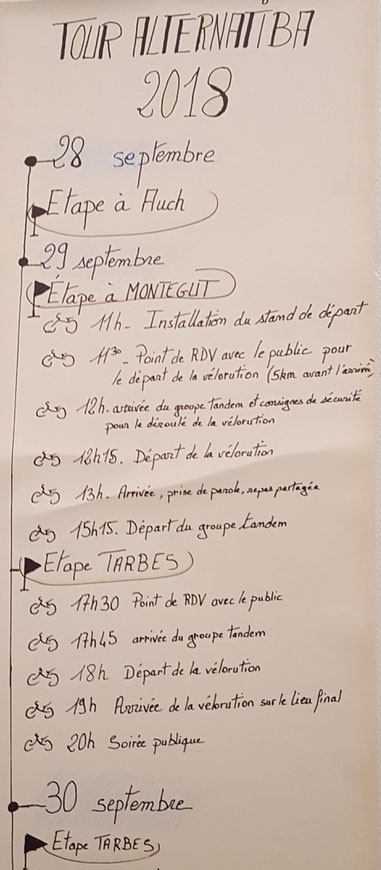 TOUR ALTERNATIBA
2018
28 septembre
Etape à Auch
29 septembre
Etape à MONTEGUT
11h - Installation du stand de départ
11³⁰ - Point de RDV avec le public pour
le départ de la vélorution (5km avant l'arrivée)
12h. arrivée du groupe tandem et consignes de sécurité
pour le déroulé de la vélorution
12h15. Départ de la vélorution
13h. Arrivée, prise de parole, repas partagée
15h15. Départ du groupe tandem
Etape TARBES
17h30 Point de RDV avec le public
17h45 arrivée du groupe tandem
18h Départ de la vélorution
19h Arrivée de la vélorution sur le lieu final
20h Soirée publique
30 septembre
Etape TARBES